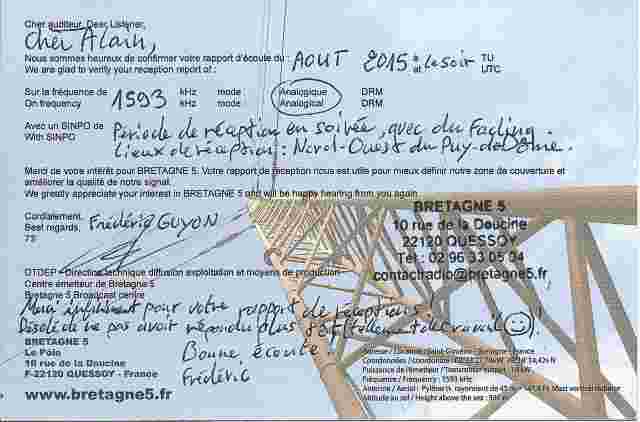 Cher auditeur, Dear Listener,
Cher Alain,
Nous sommes heureux de confirmer votre rapport d'écoute du : AOUT 2015 à le soir TU
We are glad to verify your reception report of : at UTC
Sur la fréquence de 1593 kHz mode : Analogique DRM
On frequency kHz mode : Analogical DRM
Avec un SINPO de Periode de réception en soirée, avec du Fading.
With SINPO Lieux de réception : Nord-Ouest du Puy-de-Dôme.
Merci de votre intérêt pour BRETAGNE 5. Votre rapport de réception nous est utile pour mieux définir notre zone de couverture et
améliorer la qualité de notre signal.
We greatly appreciate your interest in BRETAGNE 5 and will be happy hearing from you again
Cordialement,
Best regards, Frédéric GUYON
73'
BRETAGNE 5
10 rue de la Doucine
22120 QUESSOY
Tél : 02 96 33 05 04
contactradio@bretagne5.fr
DTDEP - Direction technique diffusion exploitation et moyens de production
Centre émetteur de Bretagne 5
Bretagne 5 Broadcast centre
Merci infiniment pour votre rapport de réceptions !
Désolé de ne pas avoir répondu plus tôt tellement de travail !
Bonne écoute.
Frédéric
BRETAGNE 5
Le Polo
10 rue de la Doucine
F-22120 QUESSOY - France
www.bretagne5.fr
Fréquence / Frequency : 1593 kHz
Altitude au sol / Height above the sea :